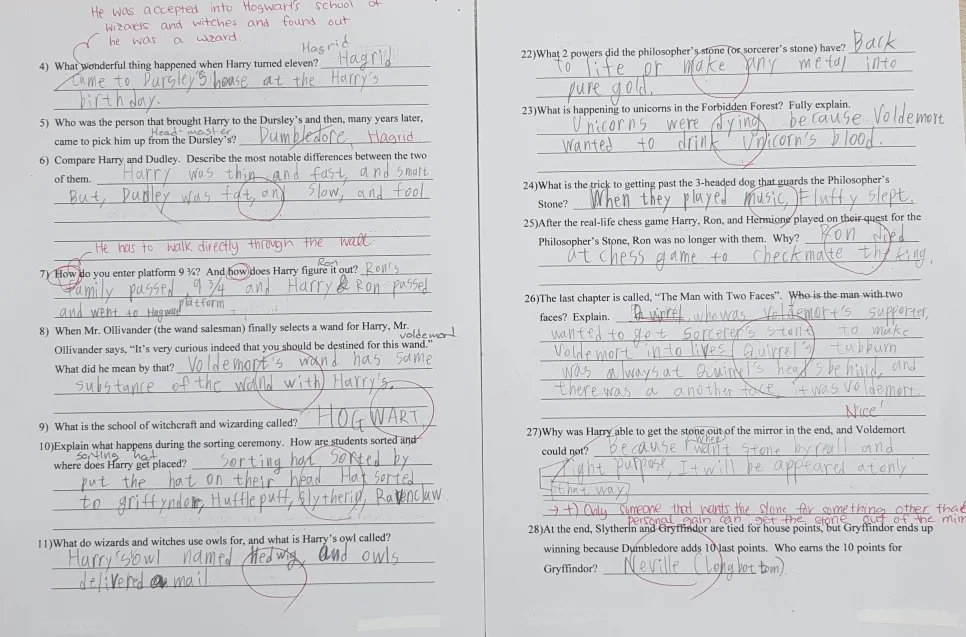 He was accepted into Hogwart's school of
wizards and witches and found out
he was a wizard.
Hagrid
4) What wonderful thing happened when Harry turned eleven? Hagrid
came to Dursley's house at the Harry's
birthday.
5) Who was the person that brought Harry to the Dursley's and then, many years later,
Head-master
came to pick him up from the Dursley's? Dumbledore, Hagrid
6) Compare Harry and Dudley. Describe the most notable differences between the two
of them. Harry was thin and fast, and smart
But, Dudley was fat, and slow, and fool
He has to walk directly through the wall.
Ron
7) How do you enter platform 9 ¾? And how does Harry figure it out? Ron's
family passed 9 3/4 and Harry & Ron passed
platform
and went to
8) When Mr. Ollivander (the wand salesman) finally selects a wand for Harry, Mr.
voldemort
Ollivander says, "It's very curious indeed that you should be destined for this wand."
What did he mean by that? Voldemort's wand has same
substance of the wand with Harry's.
9) What is the school of witchcraft and wizarding called? HOGWART
10)Explain what happens during the sorting ceremony. How are students sorted and
sorting hat
where does Harry get placed? Sorting hat sorted by
put the hat on their head. Hat sorted
to griffyndor, Hufflepuff, Slytherin, Ravenclaw.
11)What do wizards and witches use owls for, and what is Harry's owl called?
Harry's owl named Hedwig, and owls
delivered a mail
22)What 2 powers did the philosopher's stone (or sorcerer's stone) have? Back
to life or make any metal into
pure gold.
23)What is happening to unicorns in the Forbidden Forest? Fully explain.
Unicorns were dying because Voldemort
wanted to drink Unicorn's blood.
24)What is the trick to getting past the 3-headed dog that guards the Philosopher's
Stone? When they played music, Fluffy slept.
25)After the real-life chess game Harry, Ron, and Hermione played on their quest for the
Philosopher's Stone, Ron was no longer with them. Why? Ron died
at chess game to checkmate the king.
26)The last chapter is called, "The Man with Two Faces". Who is the man with two
faces? Explain. Quirrel, who was Voldemort's supporter,
wanted to get Sorcerer's stone to make
Voldemort into lives. Quirrel's tabburn
was always at Quirrel's head's behind, and
there was a another face, it was Voldemort.
Nice!
27)Why was Harry able to get the stone out of the mirror in the end, and Voldemort
When
could not? because I want stone by real and
right purpose, It will be appeared at only
that way
→ +) Only someone that wants the stone for something other than
personal gain can get the stone out of the
28)At the end, Slytherin and Gryffindor are tied for house points, but Gryffindor ends up
winning because Dumbledore adds 10 last points. Who earns the 10 points for
Gryffindor? Neville (Longbottom).